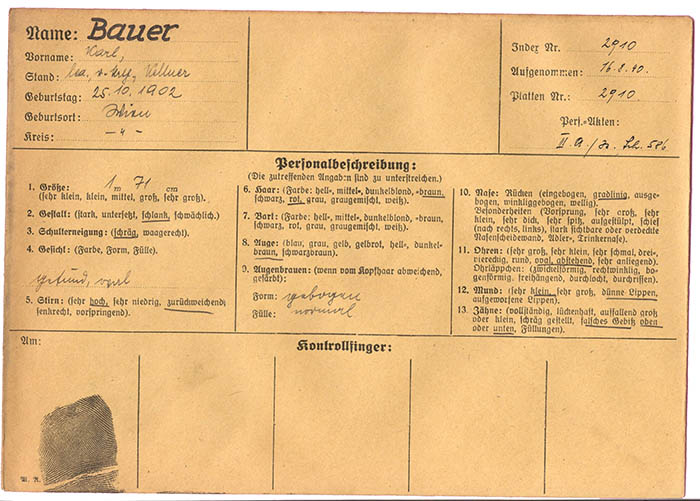 Name: Bauer
Vorname: Karl,
Stand: Kellner
Geburtstag: 25.10.1902
Geburtsort: Wien
Kreis: -"-
Index Nr. 2910
Aufgenommen: 16.8.40.
Platten Nr. 2910.
Pers.-Akten:
II a 586
Personalbeschreibung:
(Die zutreffenden Angab:n sind zu unterstreichen.)
1. Größe: 1 m 71 cm
(sehr klein, klein, mittel, groß, sehr groß).
2. Gestalt: (stark, untersetzt, schlank, schwächlich.)
3. Schulterneigung: (schräg, waagerecht).
4. Gesicht: (Farbe, Form, Fülle).
gesund, oval
5. Stirn: (sehr hoch, sehr niedrig, zurückweichend,
senkrecht, vorspringend).
6. Haar: (Farbe: hell-, mittel-, dunkelblond, -braun,
schwarz, rot, grau, graugemischt, weiß).
7. Bart: (Farbe: hell-, mittel-, dunkelblond, -braun,
schwarz, rot, grau, graugemischt, weiß).
8. Auge: (blau, grau, gelb, gelbrot, hell-, dunkel-
braun, schwarzbraun).
9. Augenbrauen: (wenn vom Kopfhaar abweichend,
gefärbt):
Form: gebogen
Fülle: normal
10. Nase: Rücken (eingebogen, gradlinig, ausge-
bogen, winkliggebogen, wellig).
Besonderheiten (Vorsprung, sehr groß, sehr
klein, sehr dick, sehr spitz, aufgestülpt, schief
(nach rechts, links), stark sichtbare oder verdeckte
Nasenscheidewand, Adler-, Trinkernase).
11. Ohren: (sehr groß, sehr klein, sehr schmal, drei-,
viereckig, rund, oval, abstehend, sehr anliegend).
Ohrläppchen: (zwickelförmig, rechtwinklig, bo-
genförmig, freihängend, durchlocht, durchrissen).
12. Mund: (sehr klein, sehr groß, dünne Lippen,
aufgeworfene Lippen).
13. Zähne: (vollständig, lückenhaft, auffallend groß
oder klein, schräg gestellt, falsches Gebiß oben
oder unten, Füllungen).
Am:
Kontrollfinger:
W. R.